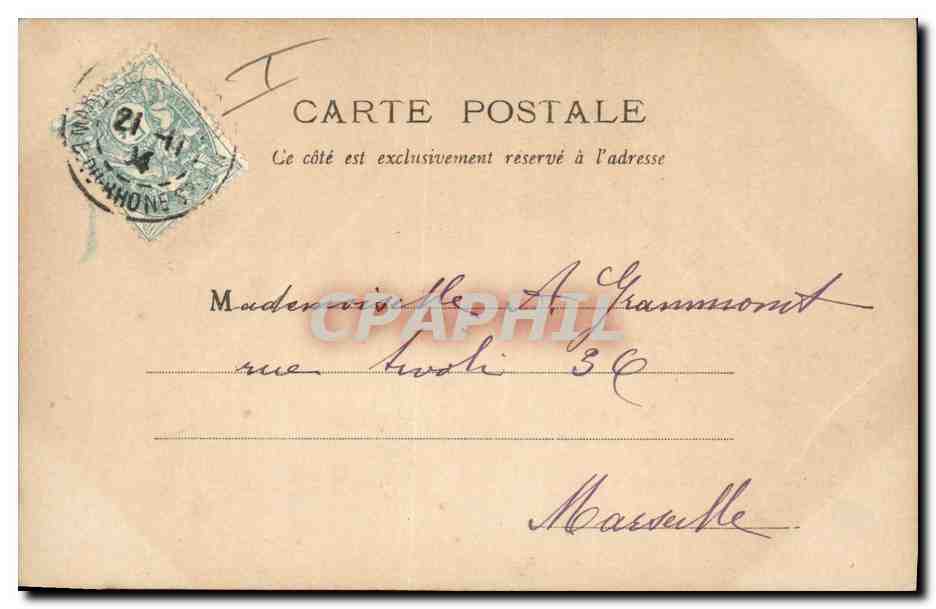 CARTE POSTALE
Ce côté est exclusivement réservé à l'adresse
21 -11
04
Mademoiselle A Grammont
CPAPHIL
rue tivoli 36
Marseille